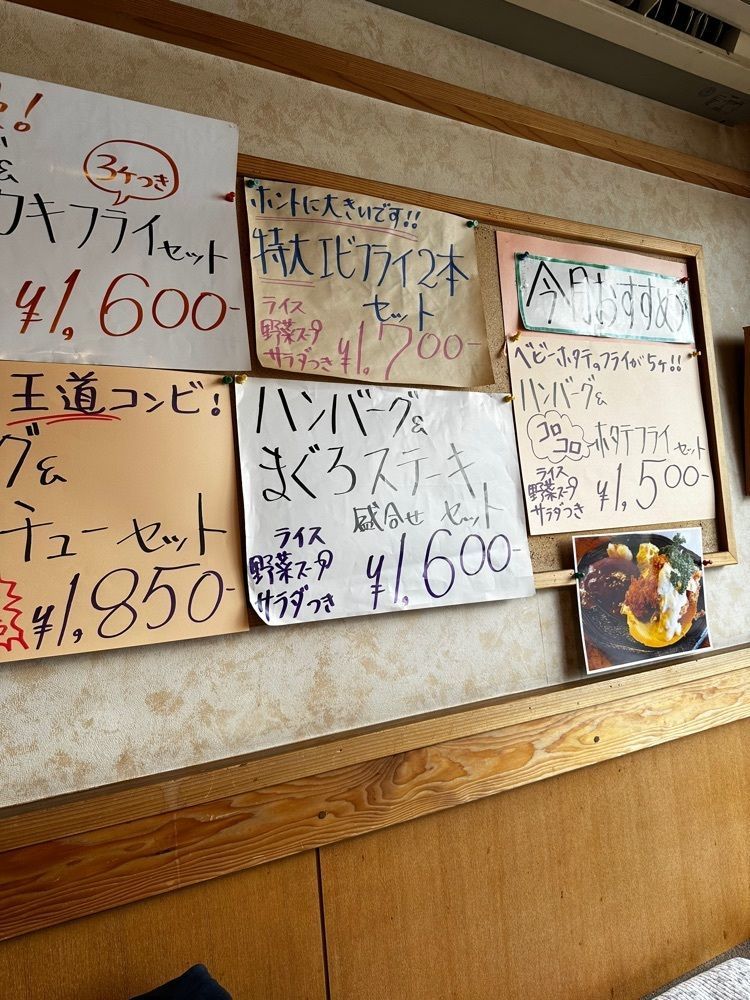 3ケつき
カキフライセット
¥1,600-
ホントに大きいです!!
特大エビフライ2本
セット
ライス
野菜スープ
サラダつき
¥1,700-
今月おすすめ
ベビーホタテのフライが5ヶ!!
ハンバーグ&
コロコロ
ホタテフライセット
ライス
野菜スープ
サラダつき
¥1,500-
王道コンビ!
グ&
チューセット
¥1,850-
ハンバーグ&
まぐろステーキ
盛合せセット
ライス
野菜スープ
サラダつき
¥1,600-